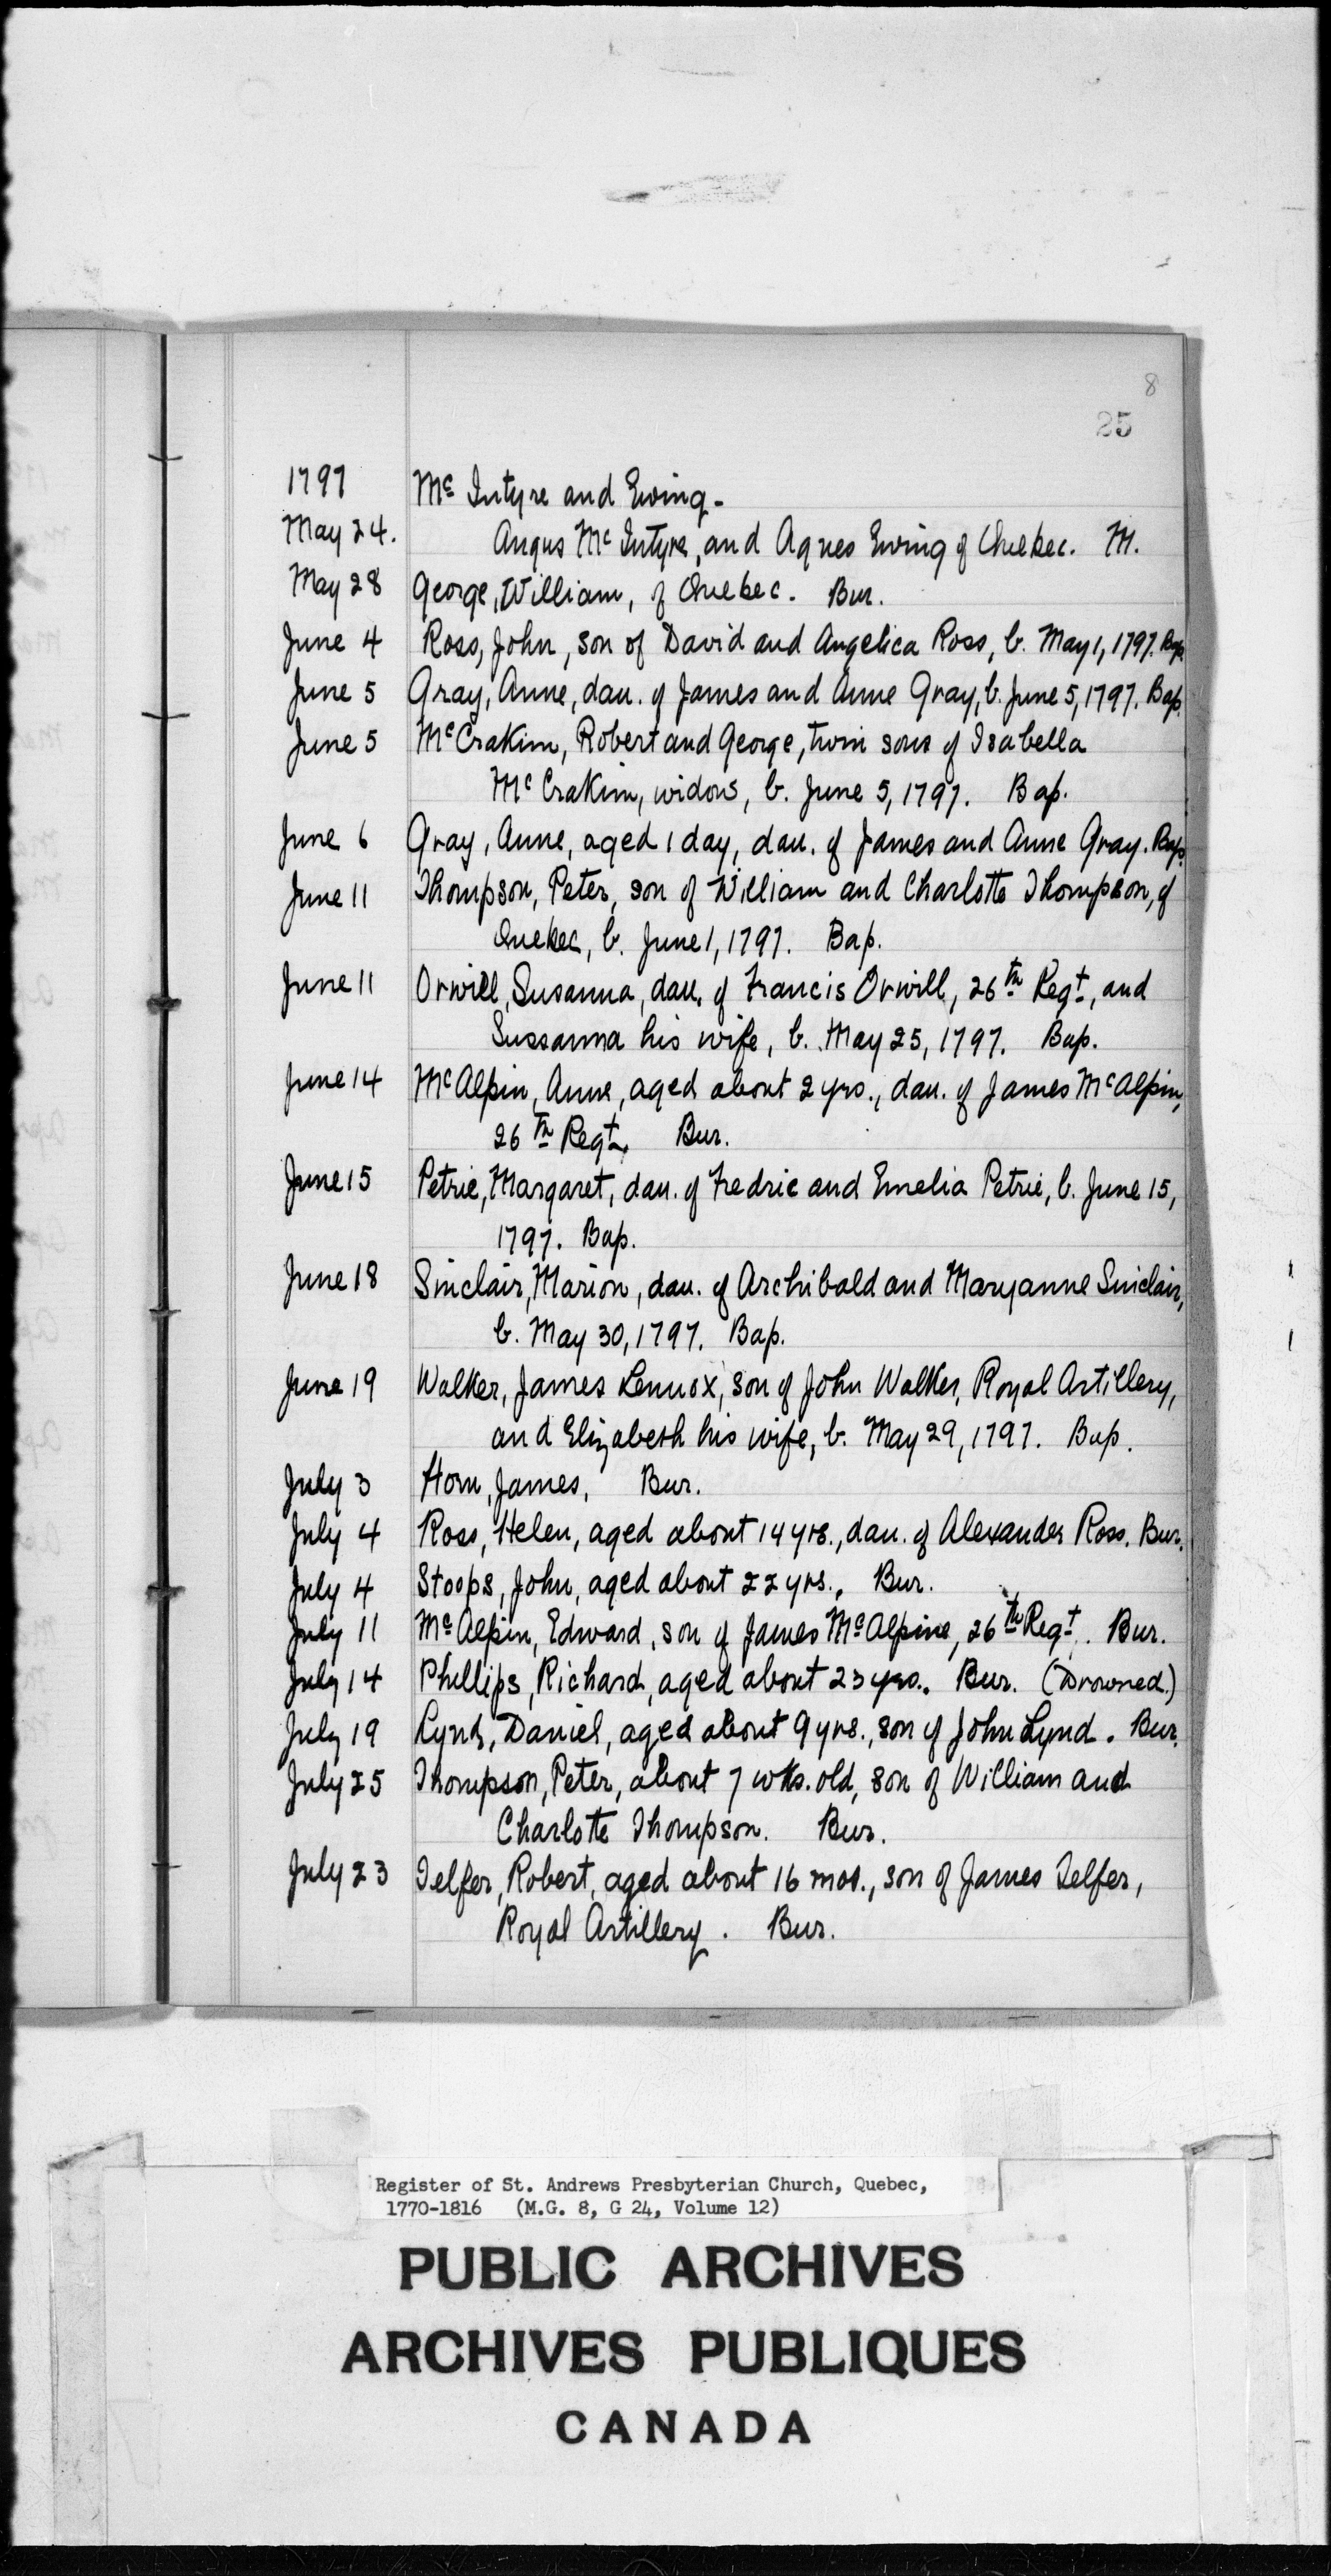 8
25
1797 Mc Intyre and Ewing -
May 24. Angus Mc Intyre, and Agnes Ewing of Quebec. M.
May 28 George, William, of Quebec. Bur.
June 4 Ross, John, son of David and Angelica Ross, b. May 1, 1797. Bap.
June 5 Gray, Anne, dau. of James and Anne Gray, b. June 5, 1797. Bap.
June 5 McCrakim, Robert and George, twin sons of Isabella
Mc Crakim, widow, b. June 5, 1797. Bap.
June 6 Gray, Anne, aged 1 day, dau. of James and Anne Gray. Bap.
June 11 Thompson, Peter, son of William and Charlotte Thompson, of
Quebec, b. June 1, 1797. Bap.
June 11 Orwill, Susanna, dau. of Francis Orwill, 26th Regt, and
Sussanna his wife, b. May 25, 1797. Bap.
June 14 McAlpin, Anne, aged about 2 yrs., dau. of James McAlpin,
26th Regt. Bur.
June 15 Petrie, Margaret, dau. of Fredric and Emelia Petrie, b. June 15,
1797. Bap.
June 18 Sinclair, Marion, dau. of Archibald and Maryanne Sinclair,
b. May 30, 1797. Bap.
June 19 Walker, James Lennox, son of John Walker, Royal Artillery,
and Elizabeth his wife, b. May 29, 1797. Bap.
July 3 Horn, James, Bur.
July 4 Ross, Helen, aged about 14 yrs., dau. of Alexander Ross. Bur.
July 4 Stoops, John, aged about 22 yrs., Bur.
July 11 McAlpin, Edward, son of James McAlpine, 26th Regt. Bur.
July 14 Phillips, Richard, aged about 23 yrs. Bur. (Drowned.)
July 19 Lynd, Daniel, aged about 9 yrs., son of John Lynd. Bur.
July 25 Thompson, Peter, about 7 wks. old, son of William and
Charlotte Thompson. Bur.
July 23 Telfer, Robert, aged about 16 mos., son of James Telfer,
Royal Artillery. Bur.
Register of St. Andrews Presbyterian Church, Quebec,
1770-1816 (M.G. 8, G 24, Volume 12)
PUBLIC ARCHIVES
ARCHIVES PUBLIQUES
CANADA